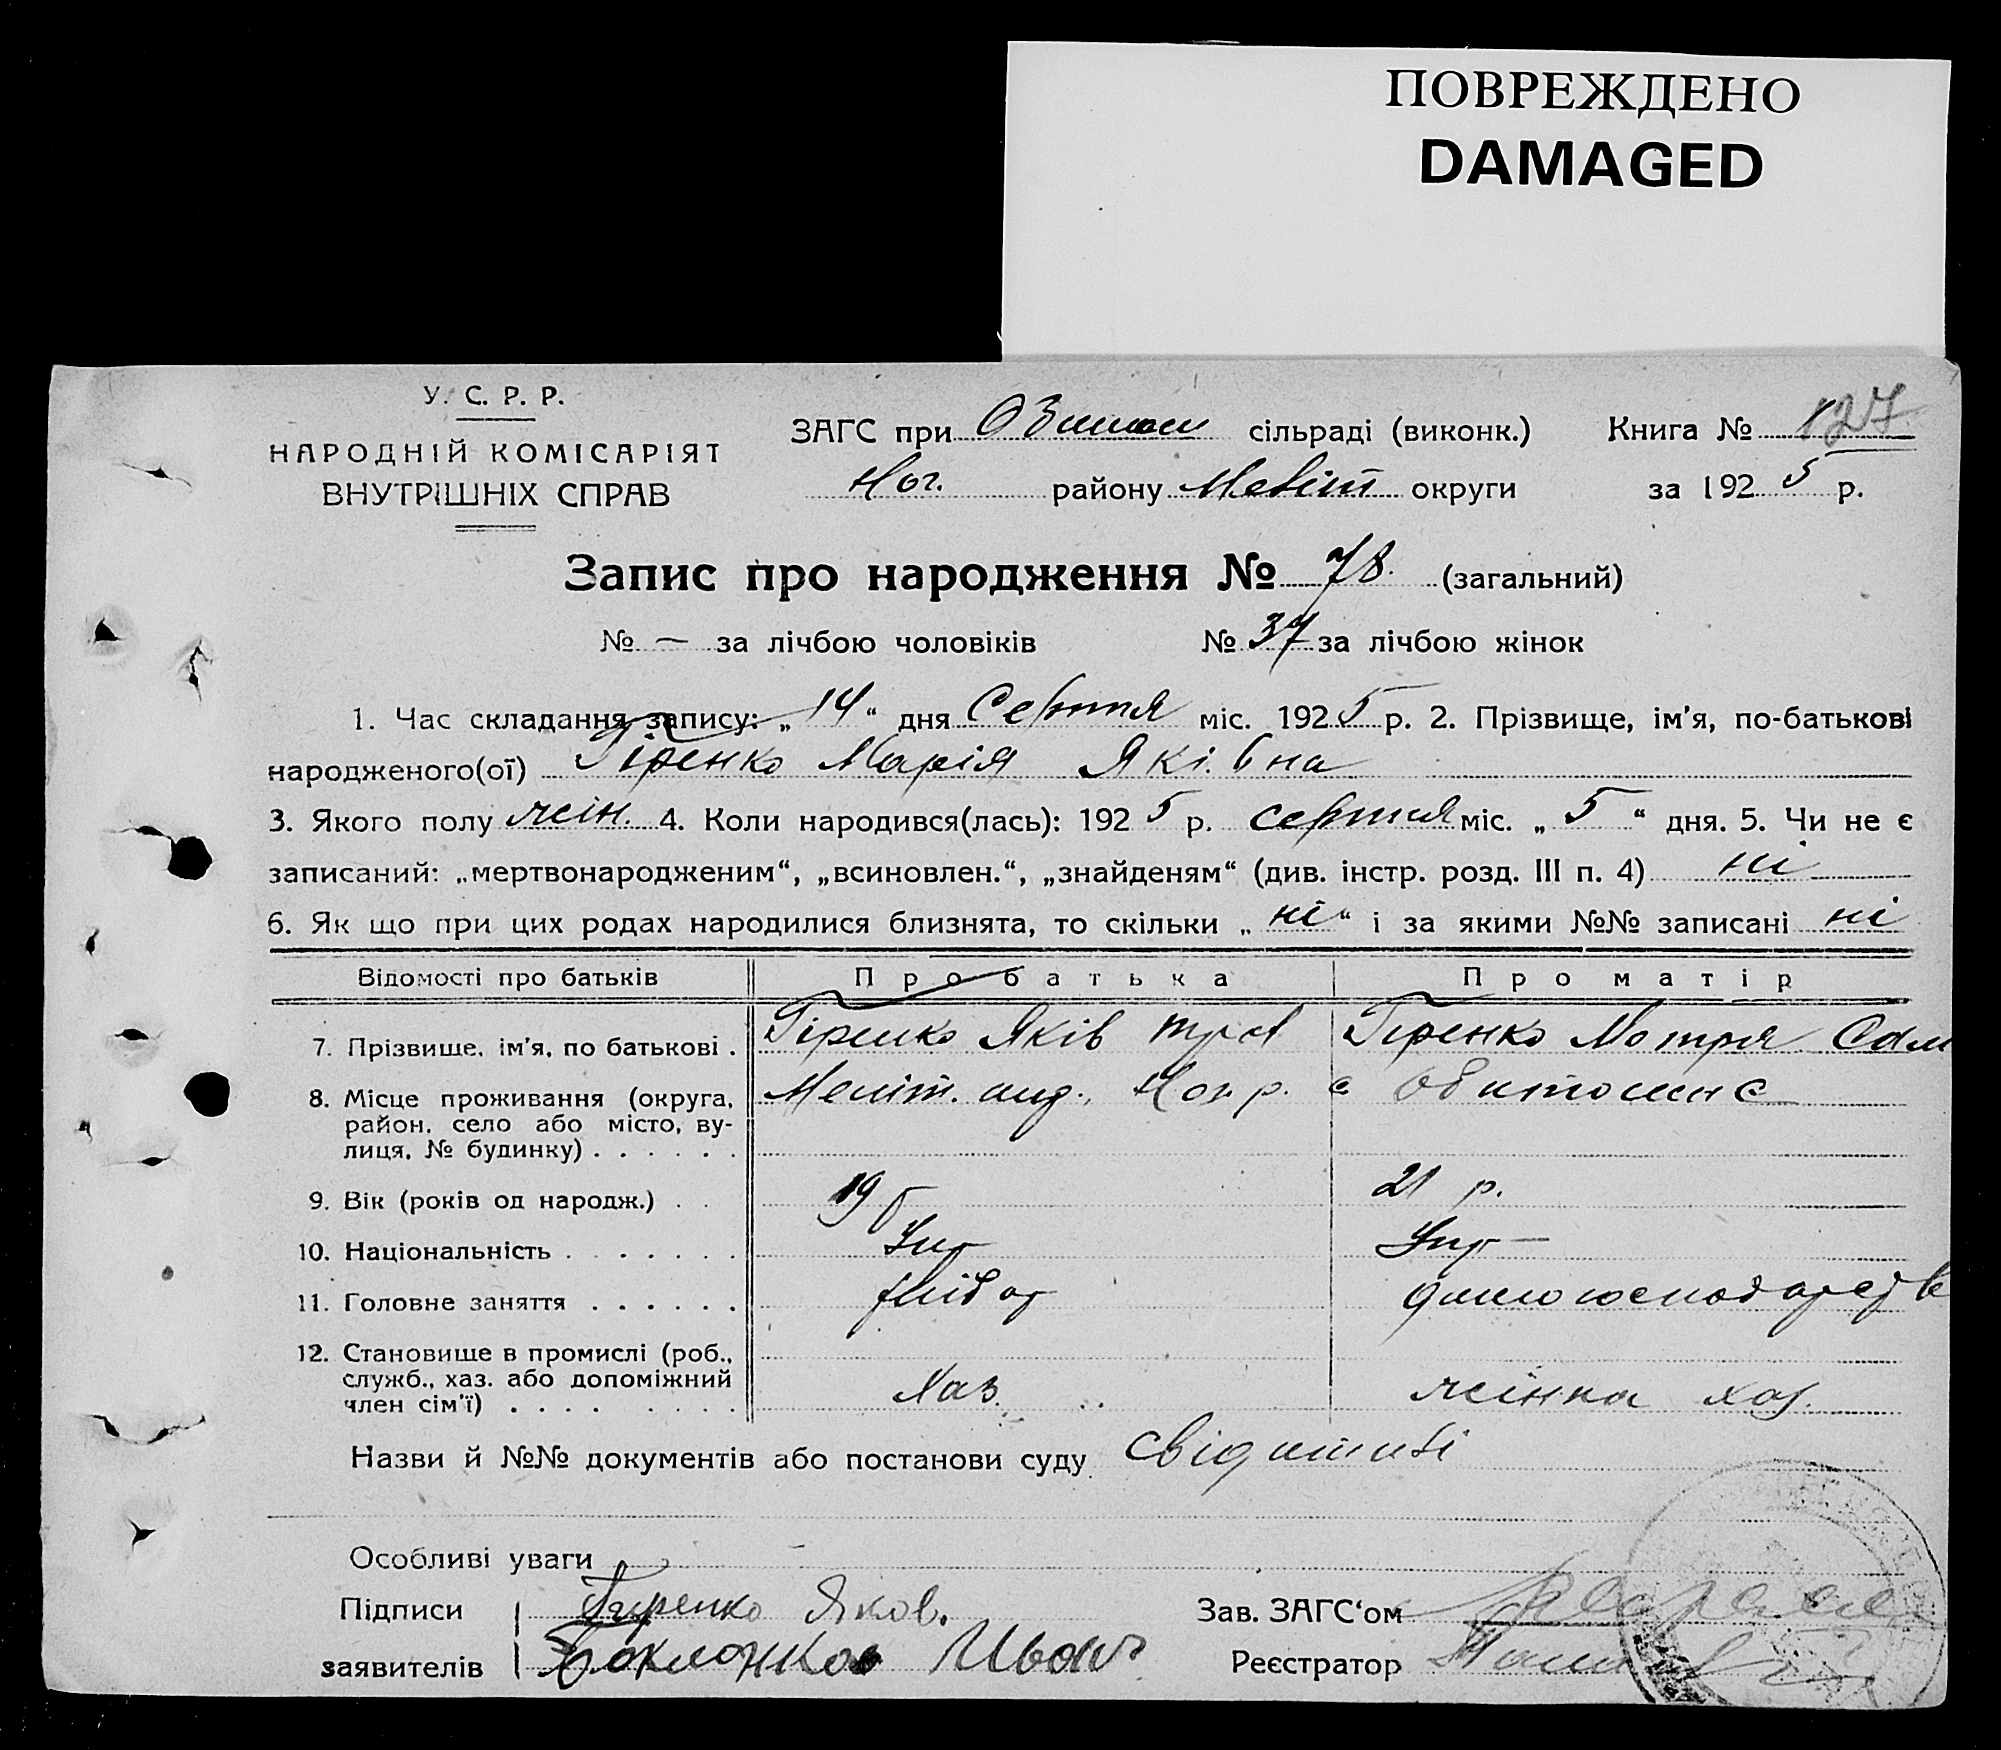 ПОВРЕЖДЕНО
DAMAGED
У. С. Р. Р.
НАРОДНІЙ КОМІСАРІЯТ
ВНУТРІШНІХ СПРАВ
ЗАГС при сільраді (виконк.) Книга № 127
Ног. району Меліт округи за 1925 р.
Запис про народження № 78. (загальний)
№ — за лічбою чоловіків № 37 за лічбою жінок
1. Час складання запису: „14“ дня Серпня міс. 1925 р. 2. Прізвище, ім'я, по-батькові
народженого(ої) Гіренко Марія Яківна
3. Якого полу жін. 4. Коли народився(лась): 1925 р. серпня міс. „5“ дня. 5. Чи не є
записаний: „мертвонародженим“, „всиновлен.“, „знайденям“ (див. інстр. розд. III п. 4) ні
6. Як що при цих родах народилися близнята, то скільки „ні“ і за якими №№ записані ні
Відомості про батьків Про батька Про матір
7. Прізвище, ім'я, по батькові . Гіренко Яків Гіренко Мотря Сам
8. Місце проживання (округа, Меліт. Ног. р. с
район, село або місто, ву-
лиця, № будинку) . . . . . .
9. Вік (років од народж.) . . 19 21 р.
10. Національність . . . . . . . Укр Укр
11. Головне заняття . . . . . . хлібор
12. Становище в промислі (роб.,
служб., хаз. або допоміжний
член сім'ї) . . . . . . . . Хаз. жінка хаз.
Назви й №№ документів або постанови суду
Особливі уваги
Підписи Гиренко Яков. Зав. ЗАГС'ом
заявителів Реєстратор